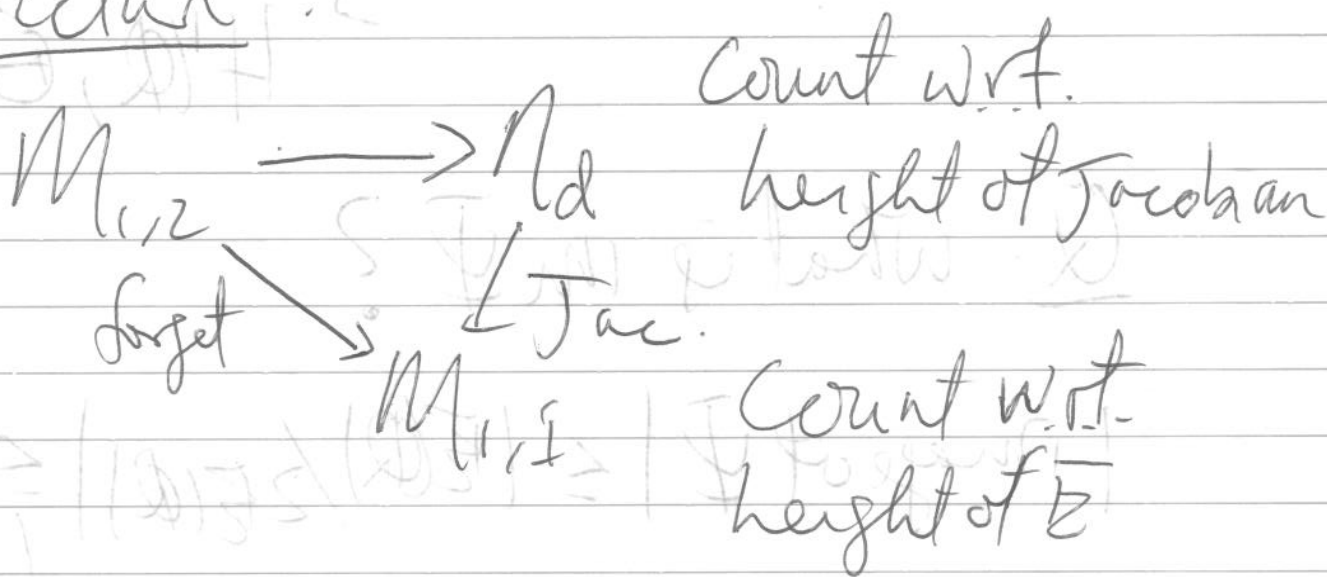 Count w.r.t.
M_{1,2} ⟶ η_d height of Jacobian
forget Jac.
M_{1,1} Count w.r.t.
height of E